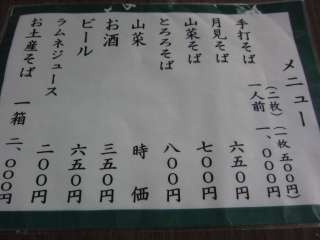 メニュー
(二枚)(一枚五〇〇円)
手打そば 一人前 一、〇〇〇円
月見そば 六五〇円
山菜そば 七〇〇円
とろろそば 八〇〇円
山菜 時価
お酒 三五〇円
ビール 六五〇円
ラムネジュース 二〇〇円
お土産そば 一箱 二、〇〇〇円